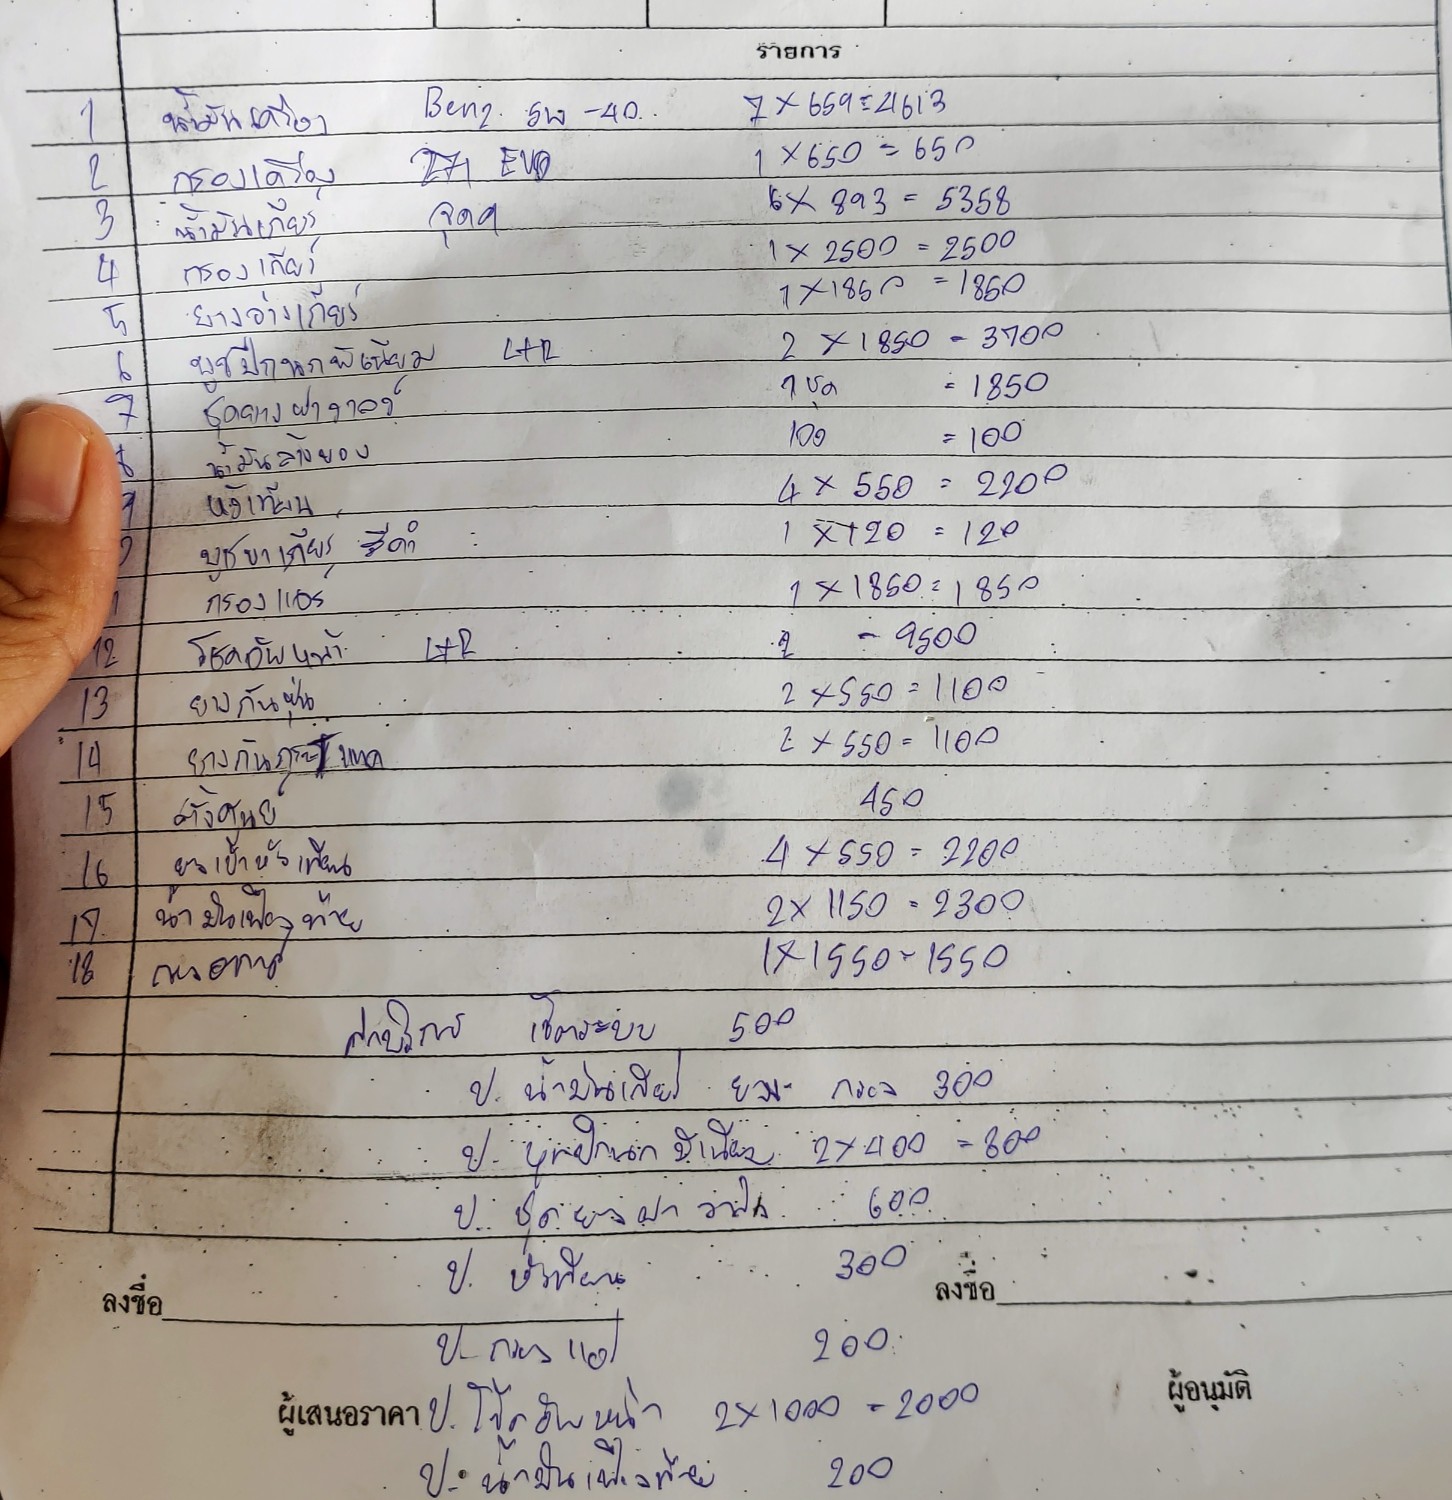 รายการ
1 น้ำมันเครื่อง Benz 5w-40 7 × 659 = 4613
2 กรองเครื่อง 271 EVO 1 × 650 = 650
3 น้ำมันเกียร์ 6 × 893 = 5358
4 กรองเกียร์ 1 × 2500 = 2500
5 ยางอ่างเกียร์ 1 × 1850 = 1850
6 บูชปีกนกพิเนียม L+R 2 × 1850 = 3700
7 ชุดยางฝาวาล์ว 1 ชุด = 1850
8 น้ำมันล้างยอง 100 = 100
9 หัวเทียน 4 × 550 = 2200
บูชขาเกียร์ สีดำ 1 × 120 = 120
1 กรองแอร์ 1 × 1850 = 1850
12 โชคอัพหน้า L+R 2 = 9500
13 ยางกันฝุ่น 2 × 550 = 1100
14 ยางกันกระแทก 2 × 550 = 1100
15 ตั้งศูนย์ 450
16 ยางเบ้าหัวเทียน 4 × 550 = 2200
17 น้ำมันเฟืองท้าย 2 × 1150 = 2300
18 กรองอากาศ 1 × 1550 = 1550
ค่าบริการ เช็คระบบ 500
ป. น้ำมันเกียร์ ยาง - กรอง 300
ป. บูชปีกนก พิเนียม 2 × 400 = 800
ป. ชุดยางฝาวาล์ว 600
ป. หัวเทียน 300
ลงชื่อ ลงชื่อ
ป. กรองแอร์ 200
ผู้เสนอราคา ป. โช๊คอัพหน้า 2 × 1000 = 2000 ผู้อนุมัติ
ป. น้ำมันเฟืองท้าย 200